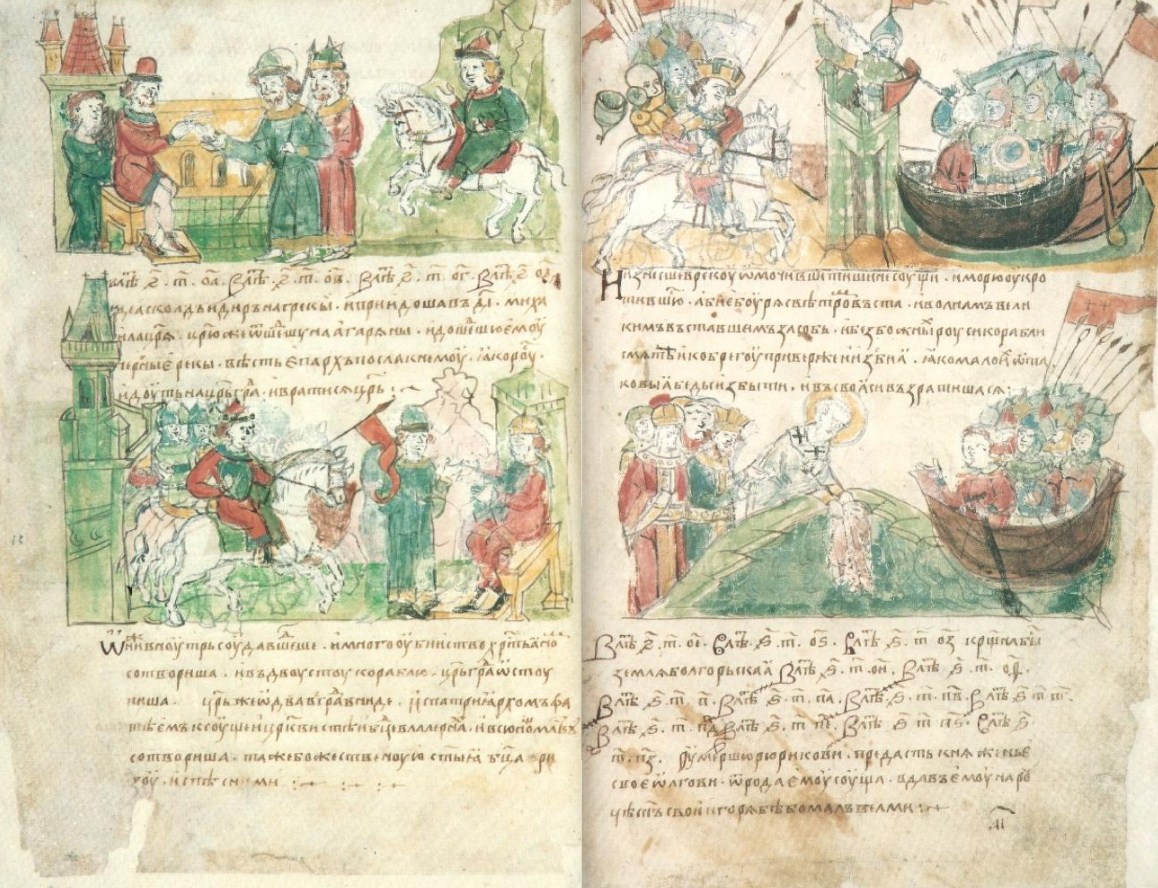 В лѣ҃ ҂ѕ҃. т҃. о҃а. В лѣ҃ ҂ѕ҃. т҃. о҃в. В лѣ҃ ҂ѕ҃. т҃. о҃г. В лѣ҃ ҂ѕ҃ о҃д
асколдъ и диръ на грекы. и приидоша въ д҃і. миха
ила цр҃ѧ. цр҃ю же ѿшешꙋ на агарѧны. и дошешю емоу
черныѣ рекы. вѣсть епархъ посла к немоу. ꙗко роу҃
идоуть на цр҃ьгра. и вратисѧ цр҃ь
Ѡни же вноутрь соуда вшеше. и много оубииство хр҃тьꙗно
сотвориша. и въ двоу стоу кораблю. цр҃ьгра ѡстоу
пиша. цр҃ь же ѡдва въ гра вниде. и с патриꙗрхомъ фа
тѣемъ к соущеи цр҃кви ст҃ѣи б҃ци влахернѣ. и всю но мл҃твꙋ
сотвориша. та же божественоую ст҃ыꙗ б҃ца ри
зоу. испѣсними
Изнесше в рекоу ѡмочивше тишине соущи. и морю оукро
тившю. абие боурѧ с вѣтромъ въста. и волнамъ вели
кимъ въставшимъ засобь. и безбожны роуси корабли
смѧте и к берегоу привержени избиа. ꙗко мало ѿ та
ковыꙗ беды избыти. и въ своꙗси възратишасѧ
В лѣ҃ ҂ѕ҃. т҃. о҃е. В лѣ҃ ѕ҃. т҃. о҃ѕ. В лѣ҃ ѕ҃. т҃ о҃з крщена бы
землѧ болгорьскаꙗ В лѣ҃ ѕ҃. т҃. о҃и. В лѣ҃ ѕ҃. т҃. о҃ѳ.
В лѣ҃ ѕ҃. т҃. п҃. В лѣ҃ ѕ҃. т҃. п҃а. В лѣ҃. ѕ҃. т҃. п҃в. В лѣ҃ ѕ҃ т҃ п҃г.
В лѣ҃ ѕ҃. т҃. п҃д В лѣ҃ ѕ҃. т҃ п҃е. В лѣ҃ ѕ҃ т҃ п҃ѕ. В лѣ҃ ѕ҃.
т҃. п҃з. оумершю рюрикови. предасть кнѧженье
свое ѡлгови. ѿ рода емоу соуща. вдавъ емоу на ро
цѣ сн҃ъ свои игорѧ бѣ бо малъ велми